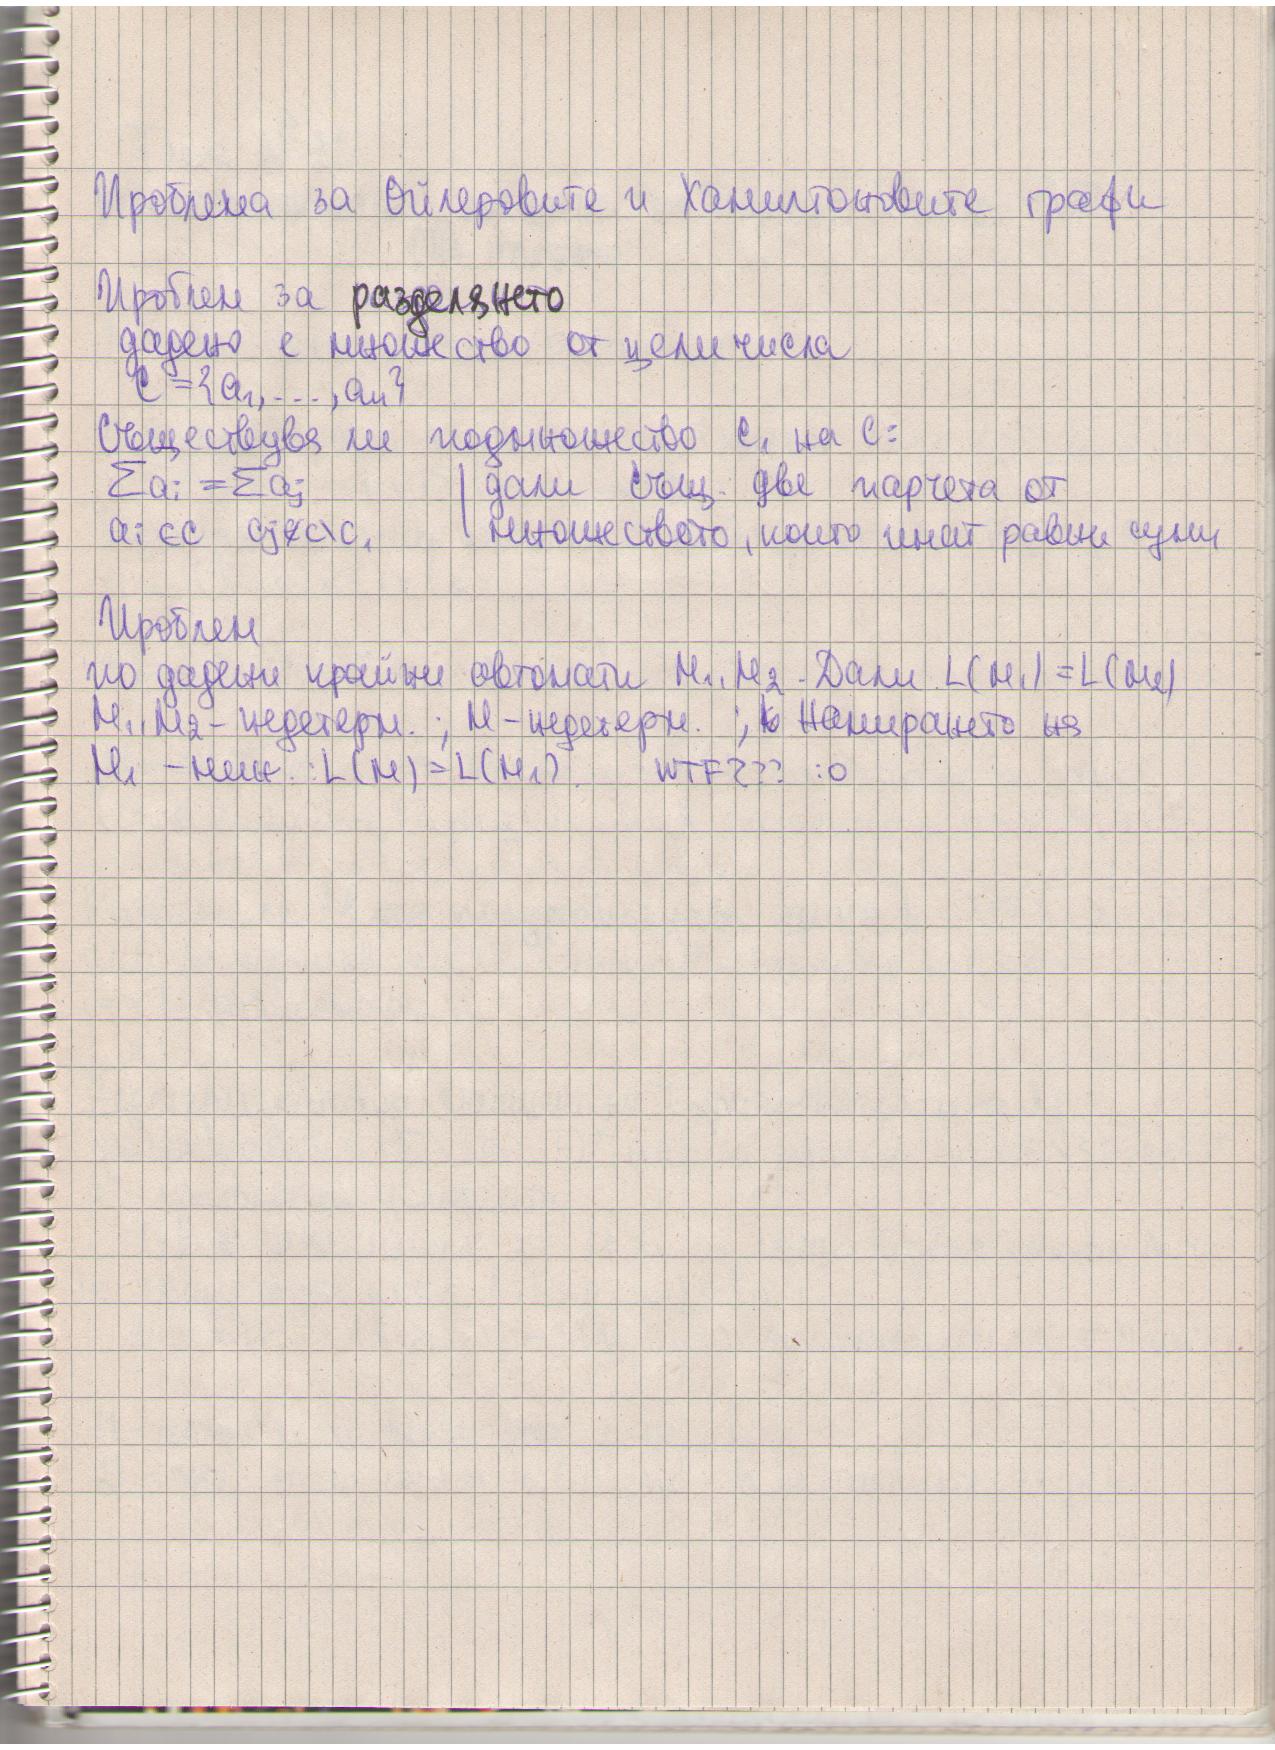 Проблема за Ойлеровите и Хамилтоновите графи
Проблем за разделянето
дадено е множество от цели числа
C = {a1, ..., an}
Съществува ли подмножество C1 на C:
Σai = Σaj | дали същ. две парчета от
ai ∈ C aj ∉ C\C1 | множеството, които имат равни суми
Проблем
по дадени крайни автомати M1, M2. Дали L(M1) = L(M2)
M1, M2 - недетерм. ; M - недетерм. ; Намирането на
M1 - мин. : L(M) = L(M1). WTF??? :o